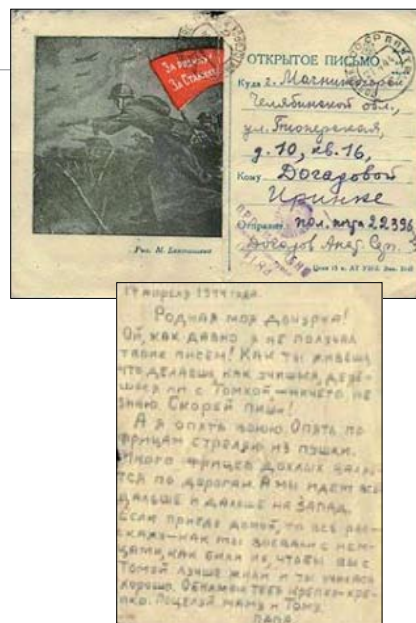 За родину!
За Сталина!
ОТКРЫТОЕ ПИСЬМО
Куда г. Магнитогорск
Челябинской обл.,
ул. Пионерская,
д. 10, кв. 16,
Кому Догадовой
Иринке
пол. почта 22396
Догадов Анат. Серг.
Рис. М.
17 апреля 1944 года.
Родная моя дочурка!
Ой, как давно я не получал
твоих писем! Как ты живешь,
что делаешь, как учишься, дерё-
шься ли с Томкой — ничего не
знаю. Скорей пиши!
А я опять воюю. Опять по
фрицам стреляю из пушки.
Много фрицев дохлых валяе-
тся по дорогам. А мы идем всё
дальше и дальше на запад.
Если приеду домой, то все рас-
скажу — как мы воевали с нем-
цами, как били их, чтобы вы с
Томой лучше жили и ты училась
хорошо. Обнимаю тебя крепко-кре-
пко. Поцелуй маму и Тому.
ПАПА